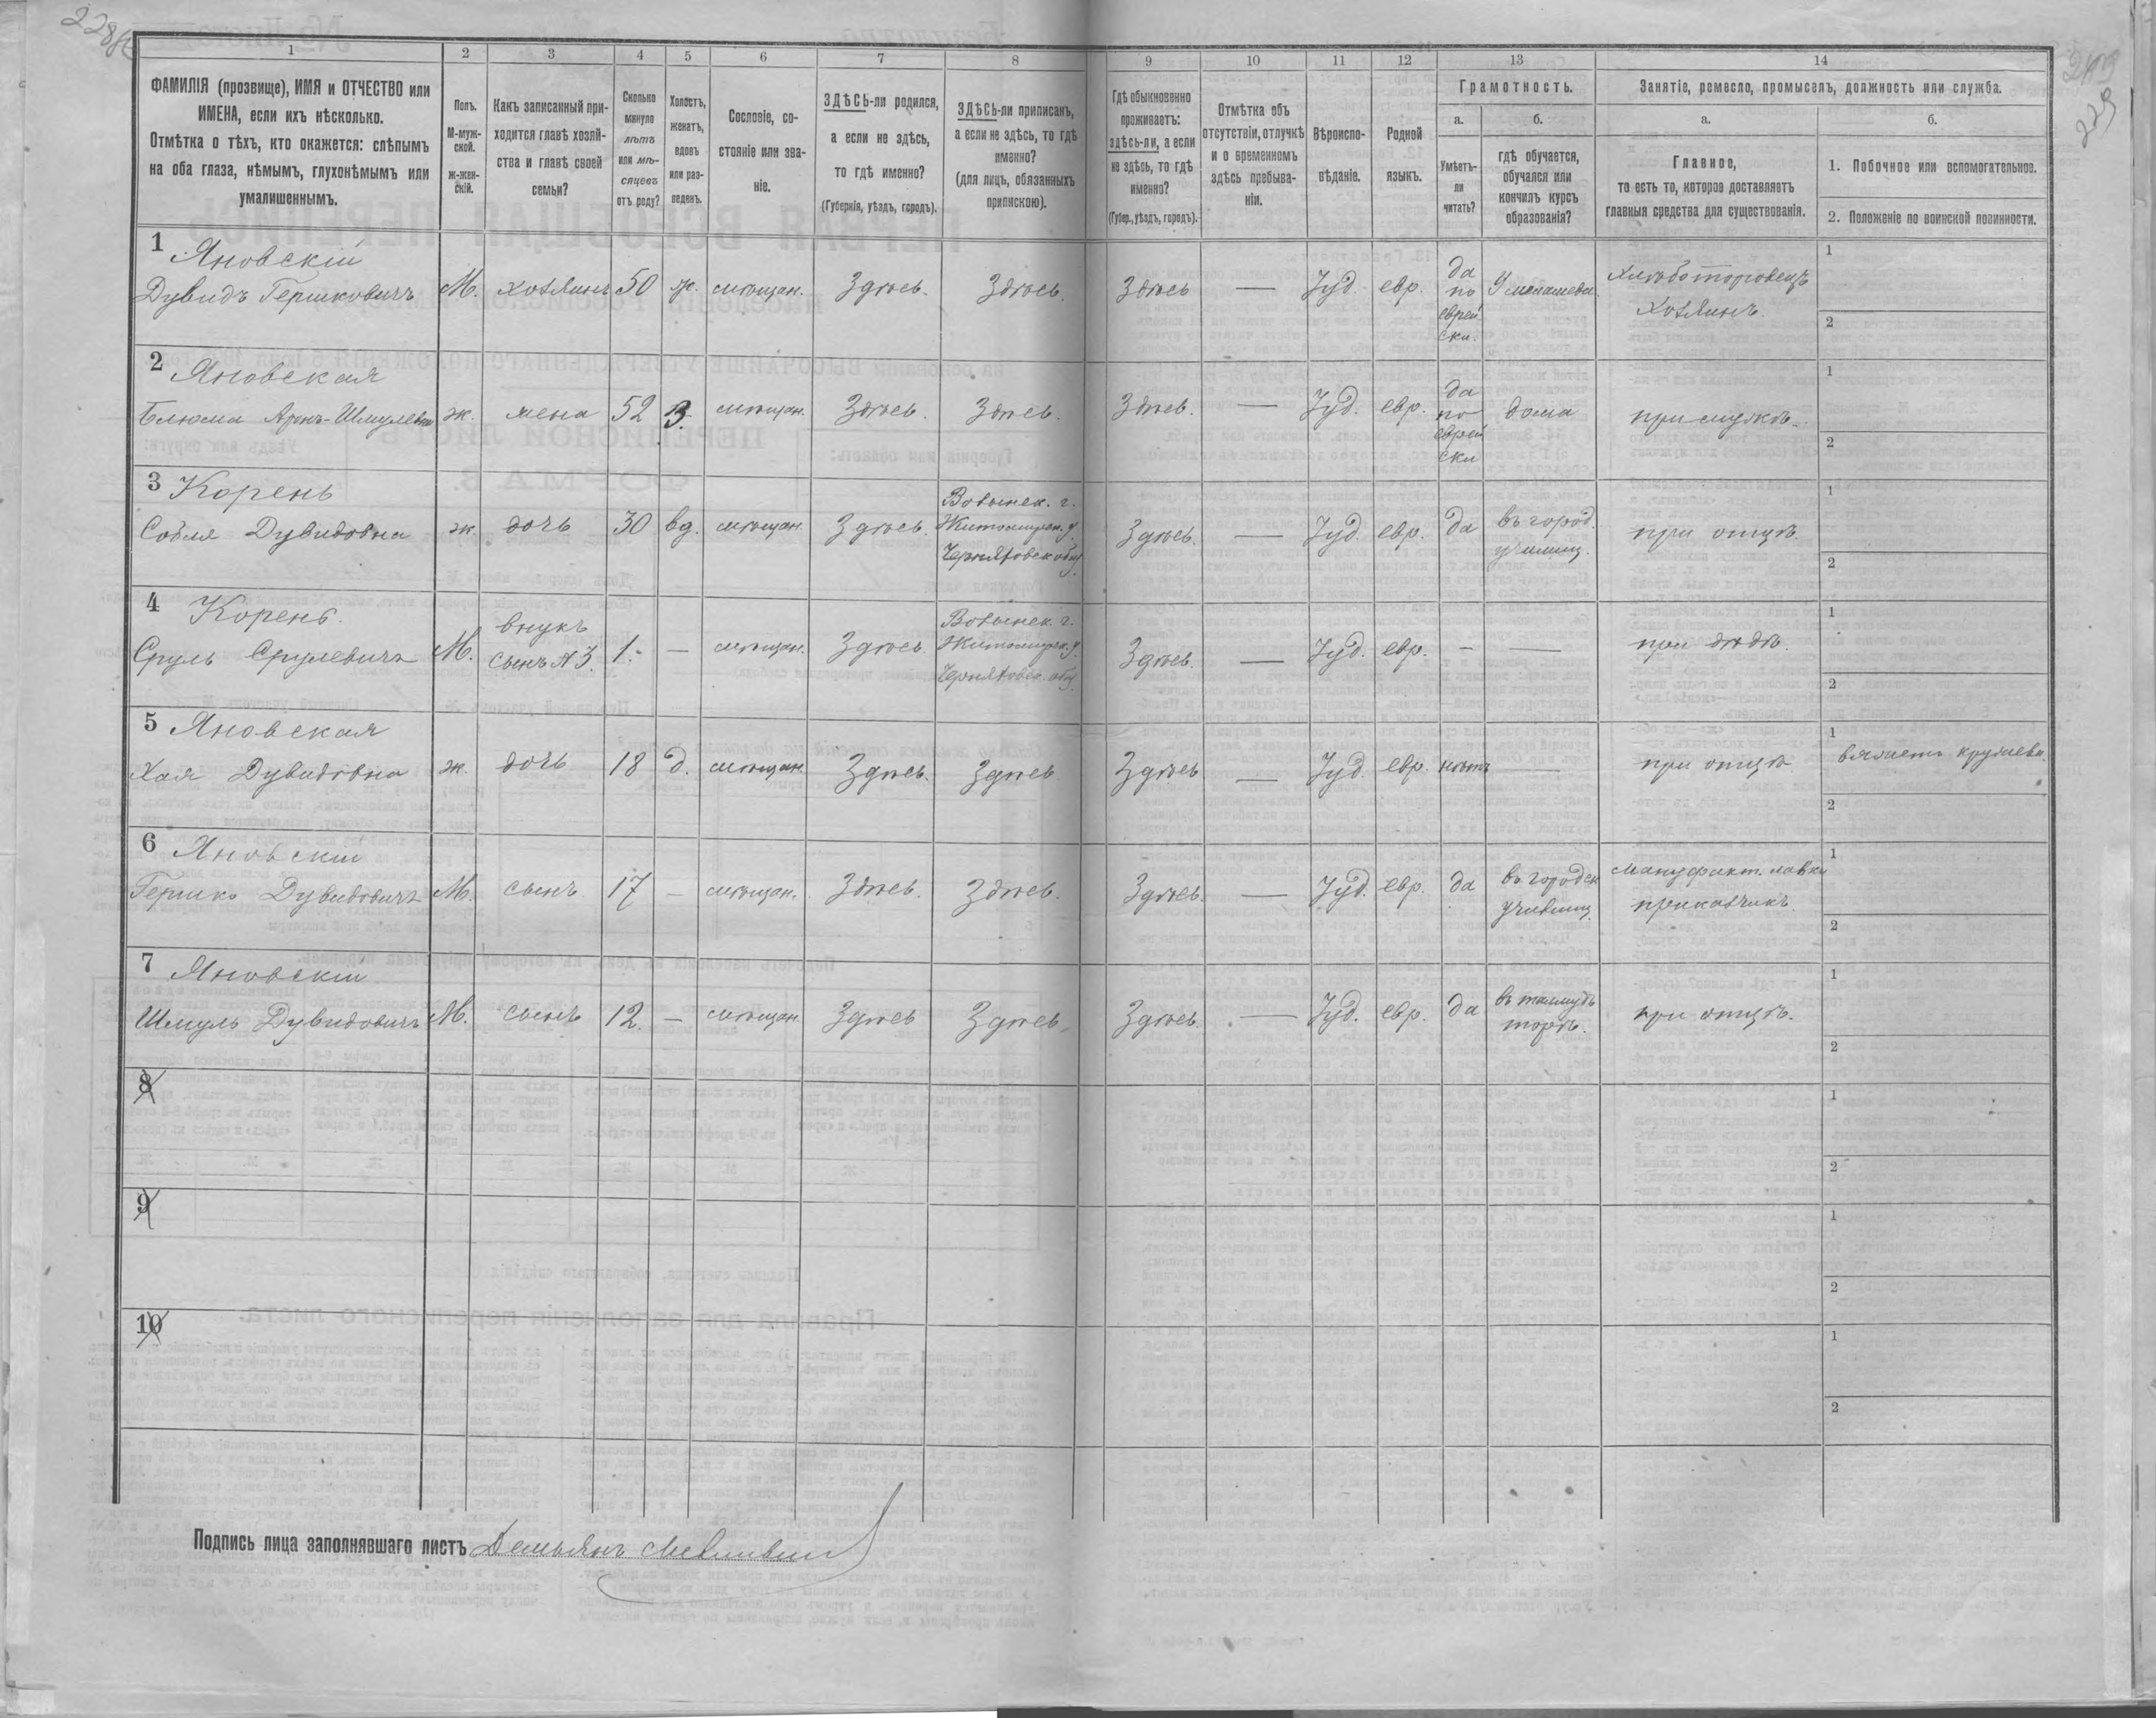 228об
229
1 2 3 4 5 6 7 8 9 10 11 12 13 14
ФАМИЛІЯ (прозвище), ИМЯ и ОТЧЕСТВО или
ИМЕНА, если ихъ нѣсколько.
Отмѣтка о тѣхъ, кто окажется: слѣпымъ
на оба глаза, нѣмымъ, глухонѣмымъ или
умалишеннымъ.
Полъ.
М-муж-
ской.
ж-жен-
скій.
Какъ записанный при-
ходится главѣ хозяй-
ства и главѣ своей
семьи?
Сколько
минуло
лѣтъ
или мѣ-
сяцевъ
отъ роду?
Холостъ,
женатъ,
вдовъ
или раз-
веденъ.
Сословіе, со-
стояніе или зва-
ніе.
ЗДѢСЬ-ли родился,
а если не здѣсь,
то гдѣ именно?
(Губернія, уѣздъ, городъ).
ЗДѢСЬ-ли приписанъ,
а если не здѣсь, то гдѣ
именно?
(для лицъ, обязанныхъ
припискою).
Гдѣ обыкновенно
проживаетъ:
здѣсь-ли, а если
не здѣсь, то гдѣ
именно?
(Губер., уѣздъ, городъ).
Отмѣтка объ
отсутствіи, отлучкѣ
и о временномъ
здѣсь пребыва-
ніи.
Вѣроиспо-
вѣданіе.
Родной
языкъ.
Грамотность.
а.
Умѣетъ-
ли
читать?
б.
гдѣ обучается,
обучался или
кончилъ курсъ
образованія?
Занятіе, ремесло, промыселъ, должность или служба.
а.
Главное,
то есть то, которое доставляетъ
главныя средства для существованія.
б.
1. Побочное или вспомогательное.
2. Положеніе по воинской повинности.
1 Яновскій
Дувидъ Гершковичъ М. хозяинъ 50 ж. мѣщан. Здѣсь. Здѣсь. Здѣсь — Іуд. евр. да по еврейски. У меламеда Хлѣботорговецъ
Хозяинъ.
1
2
2 Яновская
Блюма Аронъ-Шмулевна ж. жена 52 З. мѣщан. Здѣсь. Здѣсь. Здѣсь. — Іуд. евр. да по еврейски дома при мужѣ.
1
2
3 Корень
Собля Дувидовна ж. дочь 30 вд. мѣщан. Здѣсь. Волынск. г. Житомирск. у. Черняховск. общ. Здѣсь. — Іуд. евр. да въ город. училищ. при отцѣ.
1
2
4 Корень.
Сруль Срулевичъ М. внукъ сынъ №3. 1. — мѣщан. Здѣсь. Волынск. г. Житомирск. у. Черняховск. общ. Здѣсь. — Іуд. евр. — — при дѣдѣ.
1
2
5 Яновская
Хая Дувидовна ж. дочь 18 д. мѣщан. Здѣсь. Здѣсь. Здѣсь — Іуд. евр. нѣтъ — при отцѣ
1 вяжетъ кружева.
2
6 Яновскій
Гершко Дувидовичъ М. сынъ. 17 — мѣщан. Здѣсь. Здѣсь. Здѣсь. — Іуд. евр. да въ городск училищ. Мануфакт. лавки
приказчикъ.
1
2
7 Яновскій
Шмуль Дувидовичъ М. сынъ 12. — мѣщан. Здѣсь Здѣсь. Здѣсь. — Іуд. евр. да въ талмудъ торѣ. при отцѣ.
1
2
8
1
2
9
1
2
10
1
2
Подпись лица заполнявшаго листъ Демьянъ